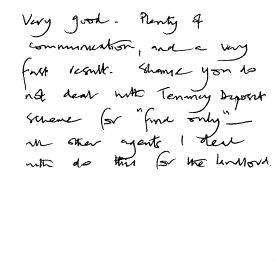 Very good. Plenty of
communication, and a very
fast result. Shame you do
not deal with Tenancy Deposit
scheme for "find only" —
all other agents I deal
with do this for the landlord.